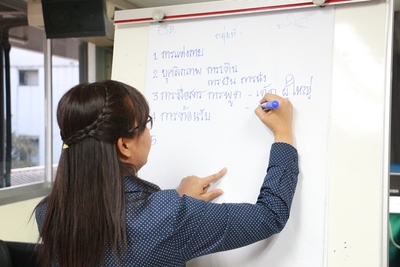 กลุ่มที่
1 การแต่งกาย
2 บุคลิกภาพ การเดิน
การยืน การนั่ง
3 การสื่อสาร การพูด - เด็ก ผู้ใหญ่
4 การต้อนรับ -
5